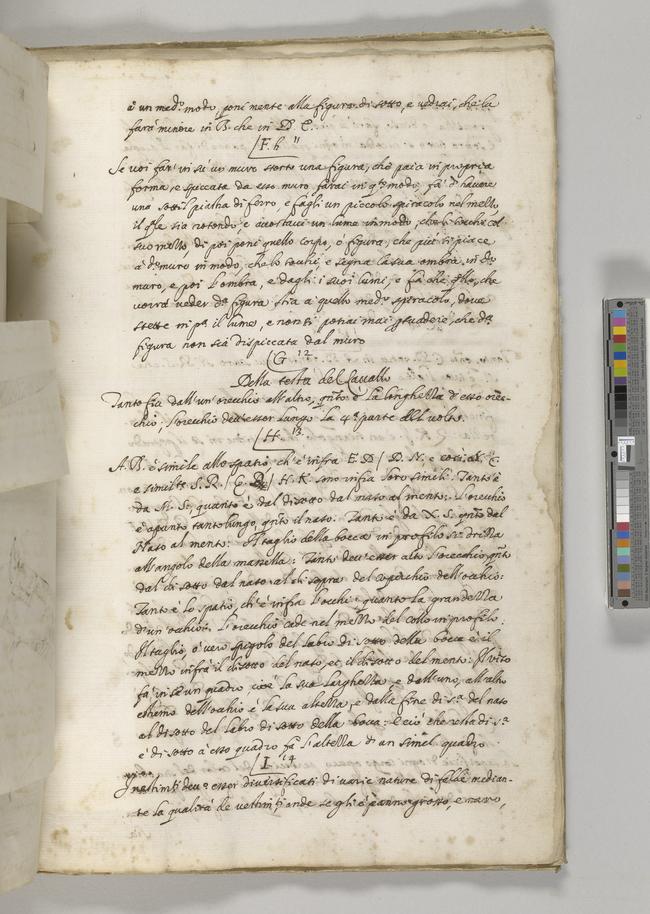 a un med.º modo, poni mente alla figura di sotto, e vedrai, che la
farà minore in B. che in D. C.
F. h 11
Se voi far' in sù un muro storto una figura, che paia in propria
forma, e spiccata da esso muro, farai in q.º modo, fà d'havere
una sottil piastra di ferro, e fagli un piccolo spiracolo nel mezzo,
il q̃le sia rotondo, e accostaci un lume in modo, che li tocchi col
suo mezzo, di poi poni quello corpo, ò figura, che più ti piace
à d.º muro in modo, che lo tochi, e segna la sua ombra in d.º
muro, e poi l'ombra, e dagli i suoi lumi, e fà che q̃llo, che
vorrà veder d.ª figura stia a quello med.º spiracolo, dove
stette in p.ª il lume, e non ti potrai mai p̱suadere, che d.ª
figura non sia dispiccata dal muro
G 12
Della testa del Cavallo
Tanto sia dall'un' orecchio all'altro, q̃nto è la longhezza d'esso orec-
chio, l'orecchio dev'esser lungo la 4.ª parte del volto.
H. 13
A. B. è simile allo spatio, ch'è infra E. D / D. N. e così
e simil.te S. R. / C. D / H. K. sono infra loro simili. Tant'è
da M. S., quanto è dal disotto dal naso al mento. L'orecchio
è apunto tanto lungo, q̃nto il naso. Tant'è da X. S. q̃nto dal
Naso al mento. Il taglio della bocca in profilo s'adrizza
all'angolo della mascella. Tant' dev'esser alto l'orecchio, q̃nto
dal di sotto dal naso al di sopra del coperchio dell'occhio.
Tanto è lo spatio, ch'è infra l'occhi, quanto la grandezza
d'un' occhio. L'orecchio cade nel mezzo del collo in profilo.
Il taglio, ò vero spigolo del labro di sotto della bocca è il
mezzo infrà il disotto del naso, et il disotto del mento. Il viso
fà in se un quadro, cioè la sua larghezza, e dall'uno, all'altro
estremo dell'occhio è la sua altezza, e dalla fine di s.ª del naso
al disotto del labro di sotto della bocca. E ciò che resta di s.ª
è di sotto à esso quadro fà l'altezza d'un simil quadro
I. 14
I vestim.ti dev.º esser diversificati di varie nature di falde median-
te la qualità de vestim.ti, onde se gli è panno grosso, e raro,